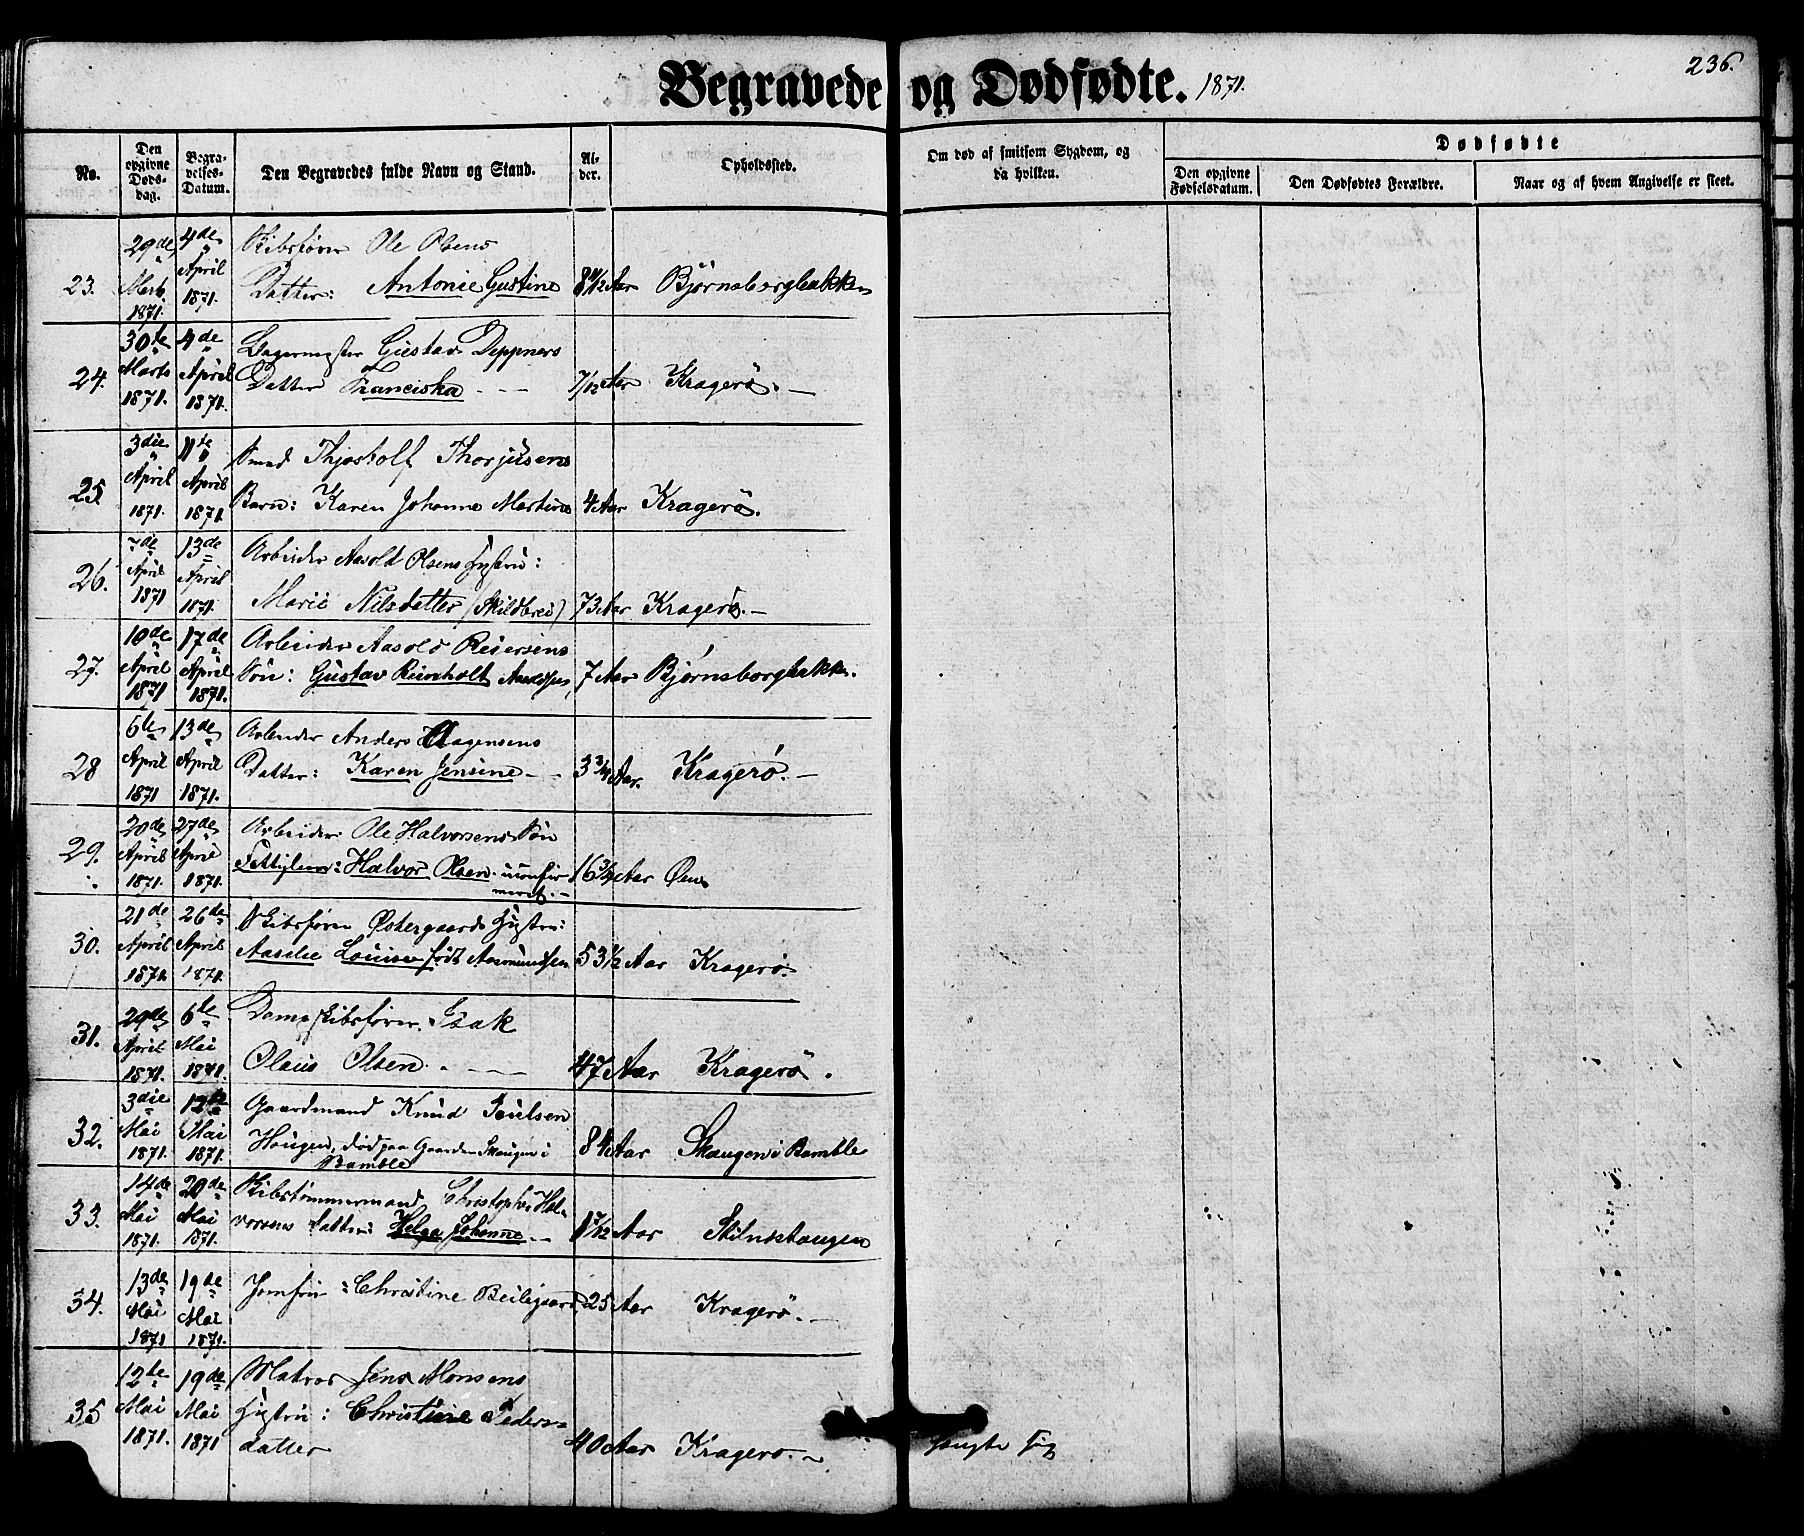 236.
Begravede og Dødfødte. 1871.
No.
Den opgivne Døds-dag.
Begra-velses-Datum.
Den Begravedes fulde Navn og Stand.
Al-der.
Opholdssted.
Om død af smitsom Sygdom, og da hvilken.
Dødfødte
Den opgivne Fødselsdatum.
Den Dødfødtes Forældre.
Naar og af hvem Angivelse er skeet.
29de 4de Skibsfører Ole Olsens
23. Marts April Datter: Antonie Gustine 8 Aar Bjørnsborgbakken
1871. 1871.
30te 4de Lagermester Gustav Deppners
24. Marts April Datter Franciska - - 7/12 Aar Kragerö. -
1871. 1871.
3die 11te Smed Thjostolf Thorjusens
25. April April Barn: Karen Johanne Martine 4 Aar Kragerö.
1871. 1871.
7de 13de Arbeider Aasold Olsens Hustru:
26. April April Marie Nilsdatter (Skildbrei) 73 Aar Kragerö. -
1871 1871.
10de 17de Arbeider Aasold Reiersens
27. April April Søn: Gustav Reinholt Aasoldsen, 7 Aar Bjørnsborgbakken.
1871 1871.
6te 13de Arbeider Anders Aagensens
28 April April Datter: Karen Jensine - - 3 3/4 Aar. Kragerø. -
1871 1871.
20de 27de Arbeider Ole Halvorsens Søn
29. April April Fattiglem: Halvor Olsen. uconfir 16 3/4 Aar Øen
1871. 1871. meret. -
21de 26de Skibsfører Østergaards Hustru:
30. April April Aasilie Louise født Aasmundsen 53 1/2 Aar Kragerø.
1871. 1871.
29de 6te Dampskibsfører Isak
31. April Mai Olaus Olsen. - - 47 Aar Kragerö.
1871. 1871.
3die 12te Gaardmand Knud Poulsen
32. Mai Mai Haugen, død paa Gaarden Skaugen i 84 Aar Skaugen i Bamble
1871. 1871. Bamble
14de 20de Skibstømmermand Christopher Hal-
33. Mai Mai vorsens Datter: Helga Johanne - 1 7/12 Aar
1871. 1871.
13de 19de Jomfru: Christine Beiligaard 25 Aar Kragerö. -
34. Mai Mai
1871 1871.
12te 19de Matros Jens Monsens
35 Mai Mai Hustru: Christine Peders-
1871. 1871 datter 40 Aar Kragerø. -
hængte sig